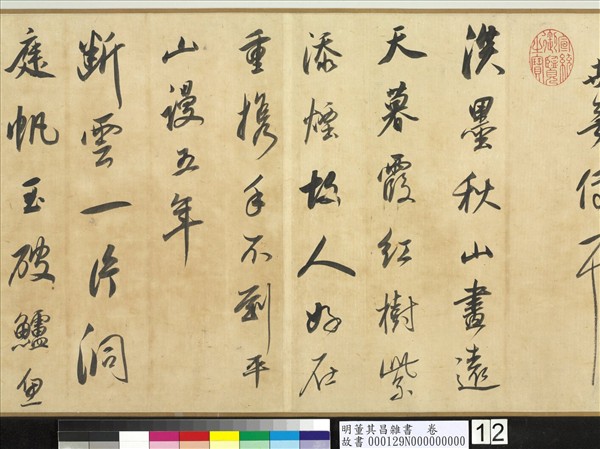 宣統御覽之寶
淡墨秋山畫遠
天暮霞紅樹紫
添煙故人好在
重攜手不到平
山謾五年
斷雲一片洞
庭帆玉破鱸魚
明董其昌雜書 卷
故書 000129N000000000
12